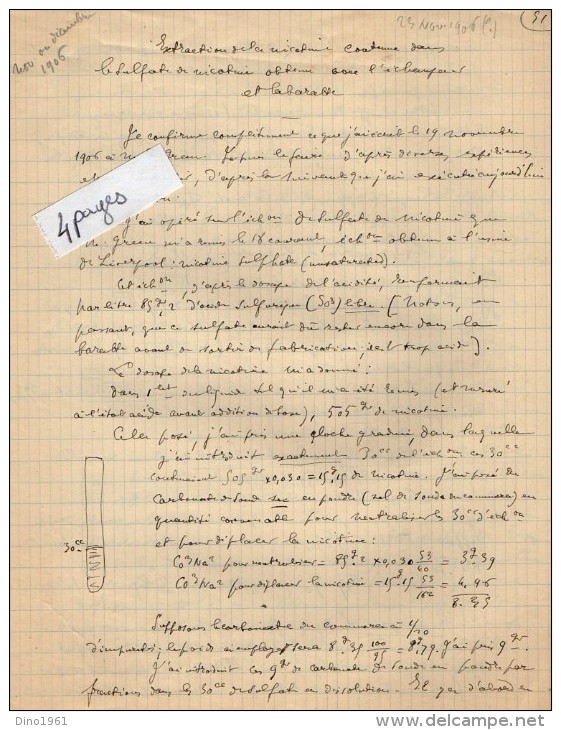 23 Nov. 1906 (.)
51
Nov ou décembre
1906
Extraction de la nicotine contenue dans
le sulfate de nicotine obtenu avec l'échangeur
et la baratte
Je confirme complètement ce que j'ai écrit le 19 novembre
1906 à Green. J'ai pu le faire d'après diverses expériences
d'après la suivante que j'ai exécutée aujourd'hui
4 pages
J'ai opéré sur l'éch^on de sulfate de nicotine que
Mr. Green m'a remis le 18 courant, éch^on obtenu à l'usine
de Liverpool: nicotine sulphate (unsaturated).
Cet éch^on, d'après le dosage de l'acidité, renfermait
par litre 85^gr,2 d'acide sulfurique (SO3) libre. [Notons, en
passant, que ce sulfate aurait dû rester encore dans la
baratte avant sa sortie de fabrication, il est trop acide].
Le dosage de la nicotine m'a donné:
dans 1 lit du liquide tel qu'il m'a été remis (et mesuré
à l'état acide avant addition de base), 505^gr de nicotine.
Cela posé, j'ai pris une cloche graduée, dans laquelle
j'ai introduit exactement 30^cc de l'éch^on, ces 30^cc
contenaient 505^gr x0,030 = 15^g,15 de nicotine. J'ai pesé du
carbonate de soude sec en poudre (sel de soude du commerce) en
quantité convenable pour neutraliser les 30^cc d'éch^on
et pour déplacer la nicotine:
30^cc
CO3Na2 pour neutraliser = 85^g,2 x0,030 53/40 = 3^g,39
CO3Na2 pour déplacer la nicotine = 15^g,15 53/162 = 4,96
8.35
Supposons le carbonate du commerce à 1/20
d'impuretés; le poids à employer sera 8^g,35 100/95 = 8^g,79. J'ai pris 9^gr.
J'ai introduit ces 9^gr de carbonate de soude en poudre par
fractions dans les 30^cc de sulfate en dissolution. Il y a d'abord eu
Dino1961
delcampe.net